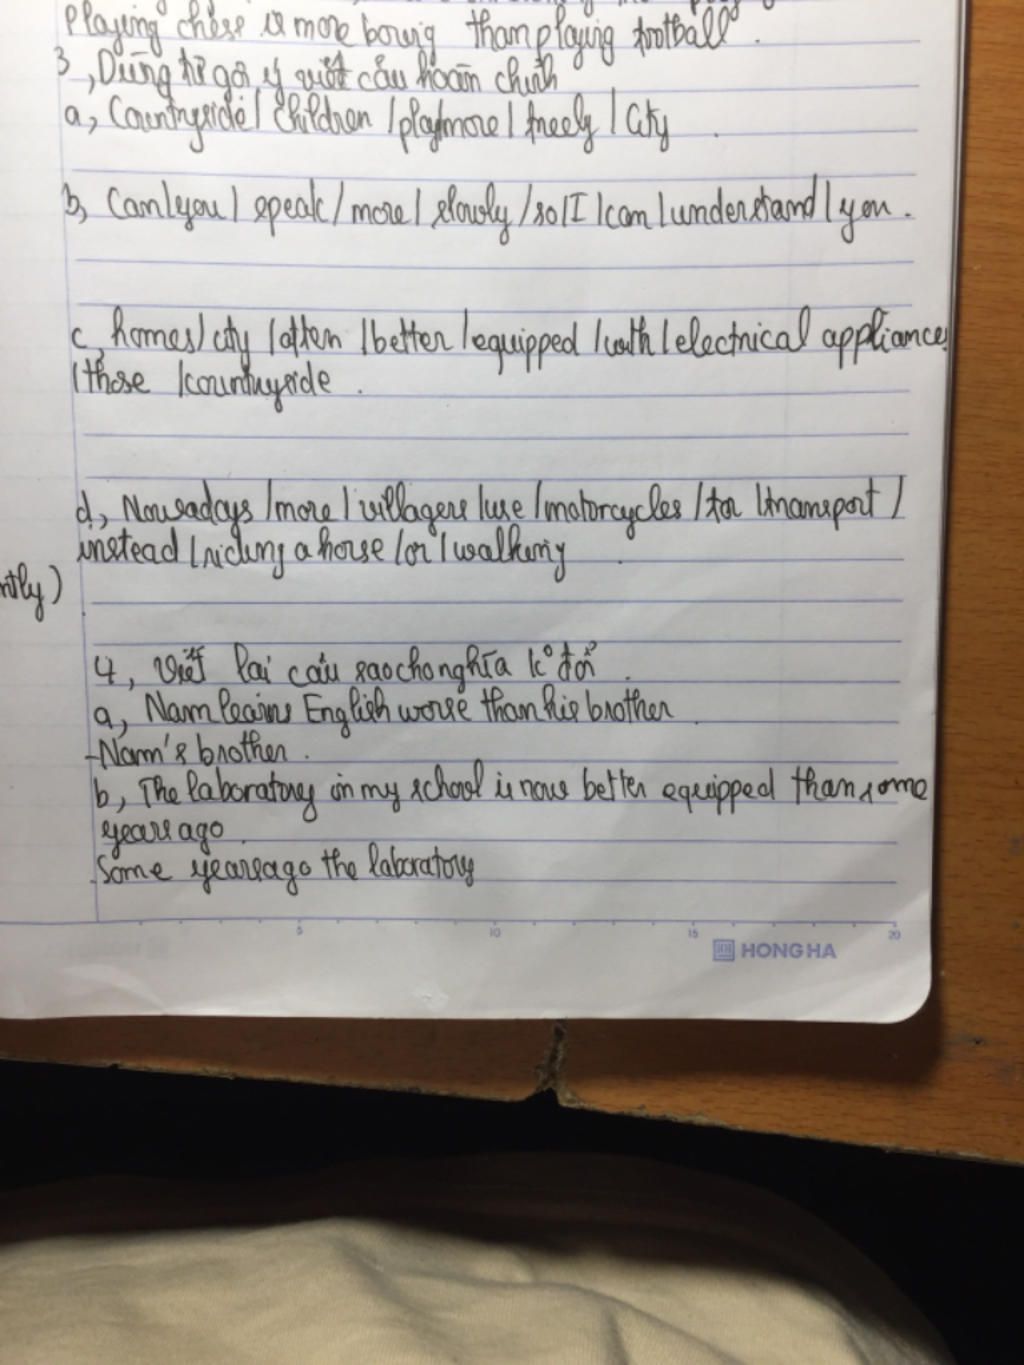 Playing chess is more boring than playing football.
3, Dùng từ gợi ý viết câu hoàn chỉnh
a, Countryside / children / play / more / freely / City
b, Can / you / speak / more / slowly / so / I / can / understand / you.
c, homes / city / often / better / equipped / with / electrical appliances
/ those / countryside.
d, Nowadays / more / villagers / use / motorcycles / for / transport /
instead / riding a horse / or / walking
ntly)
4, Viết lại câu sao cho nghĩa k° đổi.
a, Nam learns English worse than his brother
- Nam's brother.
b, The laboratory in my school is now better equipped than some
years ago.
Some years ago the laboratory
5 10 15 20
HONG HA